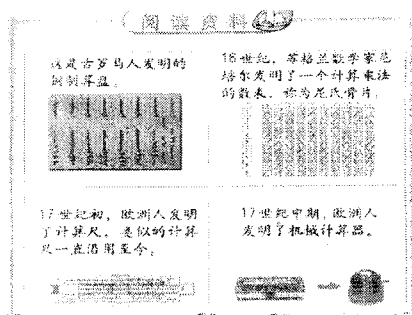 阅读资料
这是古罗马人发明的
铜制算盘。
16世纪，苏格兰数学家尼
培尔发明了一个计算乘法
的数表，称为尼氏骨片。
17世纪初，欧洲人发明
了计算尺，类似的计算
尺一直沿用至今。
17世纪中期，欧洲人
发明了机械计算器。